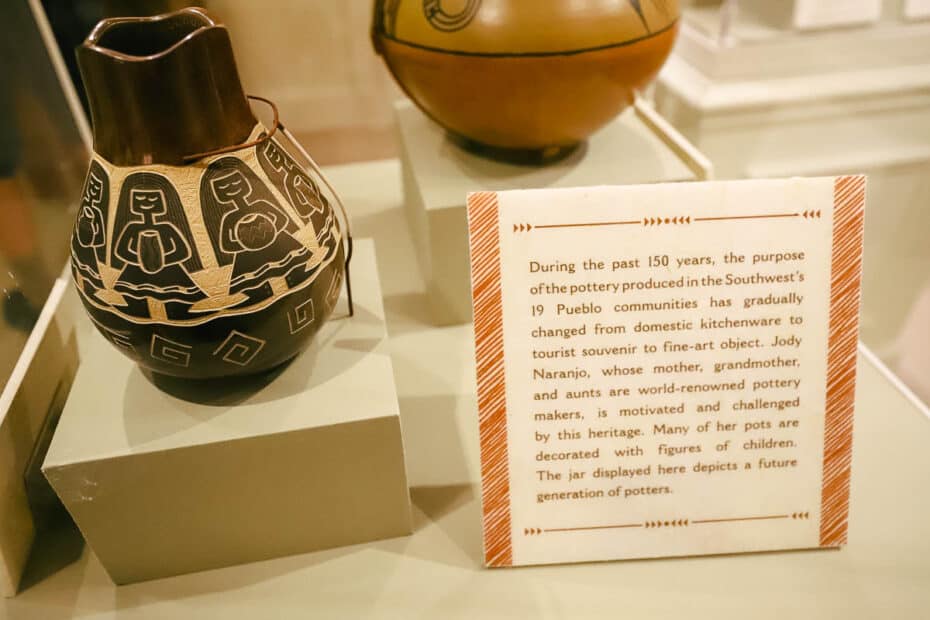 During the past 150 years, the purpose
of the pottery produced in the Southwest's
19 Pueblo communities has gradually
changed from domestic kitchenware to
tourist souvenir to fine-art object. Jody
Naranjo, whose mother, grandmother,
and aunts are world-renowned pottery
makers, is motivated and challenged
by this heritage. Many of her pots are
decorated with figures of children.
The jar displayed here depicts a future
generation of potters.